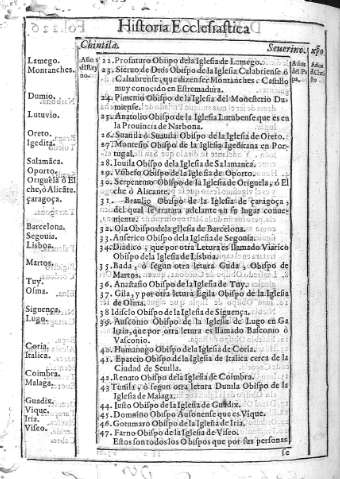 Historia Ecclesiastica
Chintila. Seuerino.
Lamego. 22. Profuturo Obispo de la Iglesia de Lamego.
Montanches. 23. Sieruo de Deos Obispo de la Iglesia Calabriense ó
Calabriense, que dizen ser Montanches. Castillo
muy conocido en Estremadura.
Dumio. 24. Pimenio Obispo de la Iglesia del Monesterio Du-
miense.
Lutuvio. 25. Anatolio Obispo de la Iglesia Lutubense que es en
la Prouincia de Narbona.
Oreto. 26. Suanila ó Suatilla Obispo de la Iglesia de Oreto.
Igedita. 27. Montesio Obispo de la Iglesia Igeditana en Por-
tugal.
Salamãca. 28. Iouila Obispo de la Iglesia de Salamanca.
Oporto. 29. Obispo de la Iglesia de Oporto.
Origuela ó El 30. Serpentino Obispo de la Iglesia de Origuela, ó El
che, ó Alicãte. che ó Alicante.
çaragoça. 31. Braulio Obispo de la Iglesia de çaragoça,
del qual se tratara adelante en su lugar conue
niente.
Barcelona. 32. Oia Obispo de la Iglesia de Barcelona.
Segouia. 33. Anserico Obispo de la Iglesia de Segouia.
Lisboa. 34. Diadico, que por otra Letura es llamado Viarico
Obispo de la Iglesia de Lisboa.
Martos. 35. Bada, ó segun otra letura Guida, Obispo de
Martos.
Tuy. 36. Anastasio Obispo de la Iglesia de Tuy.
Osma. 37. Gila, y por otra letura Egila Obispo de la Iglesia
de Osma.
Siguença. 38. Idisclo Obispo de la Iglesia de Siguença.
Lugo. 39. Ausconio Obispo de la Iglesia de Lugo en Ga
lizia, que por otra letura es llamado Basconio ó
Vasconio.
Coria. 40. Humanogo Obispo de la Iglesia de Coria.
Italica. 41. Eparcio Obispo de la Iglesia de Italica cerca de la
Ciudad de Seuilla.
Coimbra. 42. Renato Obispo de la Iglesia de Coimbra.
Malaga. 43. Tunila, ó segun otra letura Dunila Obispo de la
Iglesia de Malaga.
Guadix. 44. Iusto Obispo de la Iglesia de Guadix.
Vique. 45. Domnino Obispo Ausonense que es Vique.
Iria. 46. Gotumaro Obispo de la Iglesia de Iria.
Viseo. 47. Farno Obispo de la Iglesia de Viseo.
Estos son todos los Obispos que por sus personas
se